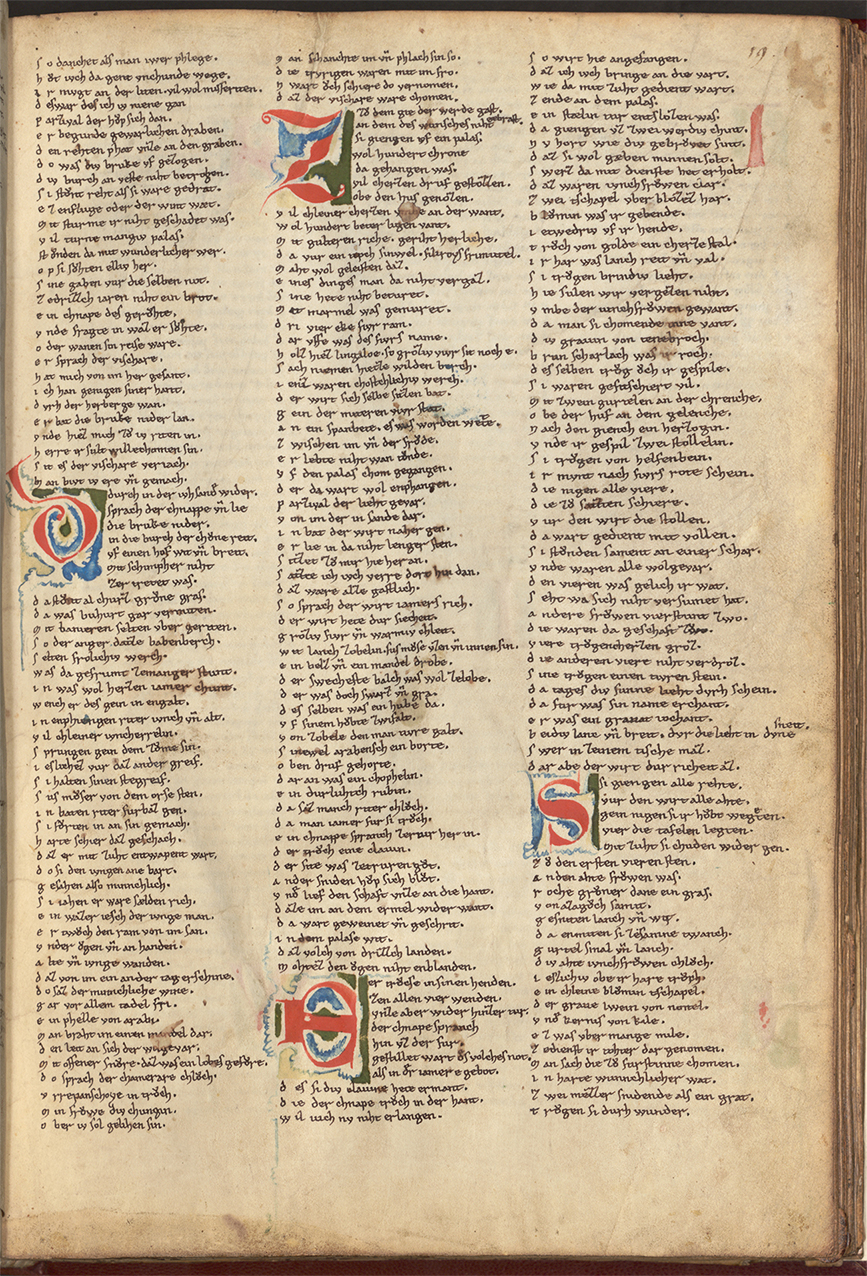 s o dauchet als man iwer phlege.
h ŏt iuch da gent vnchunde wege.
i r mugt an der liten. vil wol misseriten.
d eswar des ich iv niene gan
p arzival der hŏp sich dan.
e r begunde gewarlichen draben.
d en rehten phat vnze an den graben.
d o was div bruke vf gezogen.
d iv burch an veste niht betrogen.
s i stŏnt reht als si ware gedrat.
e z enfluge oder der wint wæt.
m it sturme ir niht geschadet was.
v il turne mangiv palas.
st ŏnden da mit wunderlicher wer.
o p si sŏhten elliv her.
s ine gaben vur die selben not.
z edrizzich iaren niht ein brot.
e in chnape des gerŏhte.
v nde fragte in waz er sŏhte.
o der wanen sin reise ware.
e r sprach der vischare.
h at mich von im her gesant.
i ch han genigen siner hant.
d vrh der herberge wan.
e r bat die bruke nider lan.
v nde hiez mich zŏ iv riten in.
h erre er sult willechomen sin.
s it es der vischare veriach.
m an bivt iv ere vñ gemach.
durch in der iuh sande wider.
sprach der chnappe vñ lie
die bruke nider.
in die burch der chŏne reit.
vf einen hof wit vñ breit.
durch schimphe er niht
zertretet was.
d a stŏnt al churz grŏne gras.
d a was buhurt gar vermiten.
m it banieren selten vber geriten.
s o der anger datze babenberch.
s elten frolichiv werch.
was da gefrumt zemanger stunt.
i n was wol herzen iamer chunt.
wench er des gein in engalt.
i n enphiengen riter iunch vñ alt.
v il chleiner iuncherrelin.
s prungen gein dem zŏme sin.
i eslichez vur daz ander greif.
s i habten sinen stegreif.
s us mŏser von dem orse sten.
i n baten riter furbaz gen.
s i fŏrten in an sin gemach.
h arte schier daz geschach.
d az er mit zuht entwapent wart.
d o si den iungen ane bart.
g esahen also minnechlich.
s i iahen er ware sælden rich.
e in wazzer iesch der iunge man.
e r twŏch den ram von im san.
v nder ŏgen vñ an handen.
a lte vñ iunge wanden.
d az von im ein ander tag erschine.
d o saz der minnichliche wine.
g ar vor allem tadel fri.
e in phelle von arabi.
m an braht im einen mandel dar.
d en leit an sich der wiegevar.
m it offener snŏre. daz was ein lobes gehŏre.
d o sprach der chamerare chlŏch.
v rrepanschoye in trŏch.
m in frŏwe div chungin.
o b er iv sol gelihen sin.
m an schanchte im vñ phlach sin so.
d ie trvrigen waren mit im fro.
n v wart ŏch schiere do vernomen.
d az der vischare ware chomen.
Zŏ dem gie der werde gast.
an dem des wunsches niht gebrast.
Si giengen vf ein palas.
wol hundert chrone
da gehangen was.
vil cherzen druf gestŏzzen.
obe den hus genŏzen.
v il chleiner cherzen vmbe an der want.
w ol hundert bette er ligen vant.
m it gulteren riche. geriht herliche.
d a vur ein tepch sinwel. filirroys frimutel.
m aht wol geleisten daz.
e ines dinges man da niht vergaz.
s ine hete niht beturet.
m it marmel was gemuret.
d ri vier eke fivr ram.
d ar vffe was des fivrs name.
h olz hiez lingaloe. so grŏziv vivr sit noch e.
s ach niemen hie ze wilden berch.
i eniz waren chostchlichiv werch.
d er wirt sich selbe sezzen bat.
g ein der mitteren fivr stat.
a n ein spanbette. es was worden wete.
z wischen im vñ der frŏde.
e r lebte niht wan tŏnde.
v f den palas chom gegangen.
d er da wart wol enphangen.
p arzival der lieht gevar.
v on im der in sande dar.
i n bat der wirt naher gen.
e r lie in da niht lenger sten.
s izzet zŏ mir hie her an.
s atzte ich iuch verre dort hin dan.
d az ware alze gastlich.
s o sprach der wirt iamers rich.
d er wirt hete dur siecheit.
g rŏziv fivr vñ warmiv chleit.
w it lanch zobelin. sus mŏse vzen vñ innen sin.
e in bellz vñ ein mandel drobe.
d er swecheste balch was wol zelobe.
d er was doch swarz vñ gra.
d es selben was ein hube da.
v f sinem hŏbte zwifalt.
v on zobele den man tvre galt.
s inwel arabensch ein borte.
o ben druf gehorte.
d ar an was ein chophelin.
e in durluhtch rubin.
d a saz manch riter chlŏch.
d a man iamer fur si trŏch.
e in chnappe spranch zertur her in.
d er trŏch eine glavin.
d er site was zetruren gŏt.
a nder sniden hŏp sich blŏt.
v nde lief den schaft vnze an die hant.
d aze im an dem ermel wider want.
d a wart geweinet vñ geschrit.
i n dem palase wit.
d az volch von drizzch landen.
m ohtez den ŏgen niht enblanden.
er trŏse in sinen henden.
zen allen vier wenden.
vnze aber wider hinzer tur.
der chnape spranch
hin vz der fur.
gestillet wart ŏs volches not.
als in ŏr iamer e gebot.
d es si div glauine hete ermant.
d ie der chnape trŏch in der hant.
w il iuch nv niht erlangen.
s o wirt hie angefangen.
d az ich iuch bringe an die vart.
w ie da mit zuht gedient wart.
z ende an dem palas.
e in stælin tur entslozen was.
d a giengen vz zwei werdiv chint.
n v hort wie div gebrŏvet sint.
d az si wol gaben minnen solt.
s werz da mit dienste het erholt.
d az waren iunchfrŏwen clar.
z wei tschapel vber blozziv har.
b lŏmin was ir gebende.
i etwedriv vf ir hende.
t rŏch von golde ein cherze stal.
i r har was lanch reit vñ val.
s i trŏgen brindiv lieht.
h ie sulen wir vergezzen niht.
v mbe der iunchfrŏwen gewant.
d a man si chomende inne vant.
d iv gravin von tenebroch.
b run scharlach was ir roch.
d es selben trŏg ŏch ir gespile.
s i waren gefischiert vil.
m it zwein gurtelen an der chrenche.
o be der huf an dem gelenche.
n ach den giench ein herzogin.
v nde ir gespil zwei stollelin.
s i trŏgen von helfenbein.
i r munt nach fivrs rote schein.
d ie nigen alle viere.
d ie zŏ satten schiere.
v ur den wirt die stollen.
d a wart gedient mit vollen.
s i stŏnden sament an einer schar.
v nde waren alle wolgevar.
d en vieren was gelich ir wat.
s eht wa sich niht versumet hat.
a ndere frŏwen vierstunt zwo.
d ie waren da geschaft zŏ.
v iere trŏgen cherzen grŏz.
d ie anderen viere niht verdrŏz.
s ine trŏgen einen tvren stein.
d a tages div sunne lieht dvrh schein.
d a fur was sin name erchant.
e r was ein granat iochant.
b eidiv lanc vñ breit. dvr die lieht in dvnne sneit.
s wer in zeinem tische maz.
d ar abe der wirt dur richeit az.
Si giengen alle rehte.
vur den wirt alle ahte.
gein nigen si ir hŏbt wegten.
vier die tafelen legten.
mit zuht si chuden wider gen.
z ŏ den ersten vieren sten.
a n den ahte frŏwen was.
r oche grŏner dane ein gras.
v on azagŏch samit.
g esniten lanch vñ wit.
d a enmitten si zesamine twanch.
g urtel smal vñ lanch.
d iv ahte iunchfrŏwen chlŏch.
i eslichiv obe ir hare trŏch.
e in chleine blŏmin tschapel.
d er grave Iwein von nonel.
v nde kernis von kale.
e z was vber mange mile.
z edienst ir tohter dar genomen.
m an sach die zŏ furstinne chomen.
i n harte wunnchlicher wat.
z wei mezzer snidende als ein grat.
t rŏgen si durh wunder.